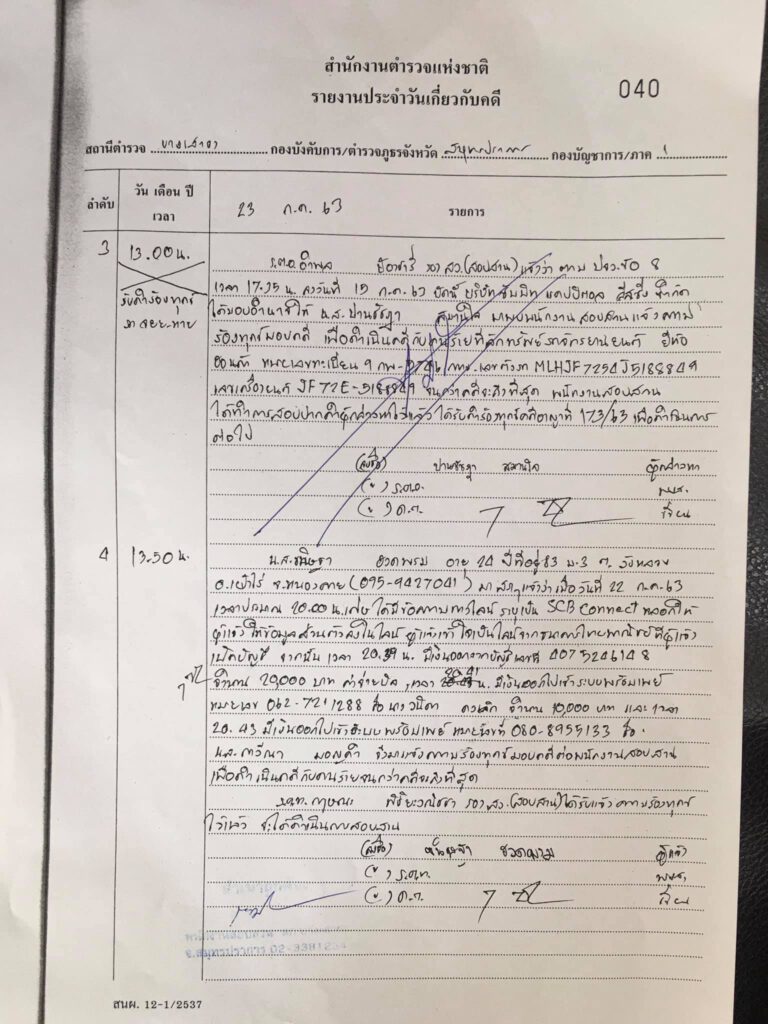 สำนักงานตำรวจแห่งชาติ
รายงานประจำวันเกี่ยวกับคดี
040
สถานีตำรวจ บางเสาธง กองบังคับการ/ตำรวจภูธรจังหวัด สมุทรปราการ กองบัญชาการ/ภาค 1
ลำดับ วัน เดือน ปี เวลา 23 ก.ค. 63 รายการ
3 13.00 น. ร.ต.อ.อำพล รอง สว.(สอบสวน) แจ้งว่า ตาม ปจว.ข้อ 8
รับคำร้องทุกข์ เวลา 17.35 น. ลงวันที่ 15 ก.ค. 63 บริษัท ซัมมิท แคปปิตอล ลีสซิ่ง จำกัด
ได้มอบอำนาจให้ น.ส.ปานชัฎา สมานใจ มาพบพนักงานสอบสวนแจ้งความ
ร้องทุกข์มอบคดี เพื่อดำเนินคดีกับคนร้ายที่ลักทรัพย์รถจักรยานยนต์ ยี่ห้อ
ฮอนด้า หมายเลขทะเบียน กทม. เลขตัวรถ MLHJF7254J5188849
เลขเครื่องยนต์ JF72E-5188849 จนกว่าคดีจะถึงที่สุด พนักงานสอบสวน
ได้ทำการสอบปากคำผู้กล่าวหาไว้แล้ว ได้รับคำร้องทุกข์คดีอาญาที่ 173/63 เพื่อดำเนินการ
ต่อไป
(ลงชื่อ) ปานชัฎา สมานใจ ผู้กล่าวหา
(") ร.ต.อ. พงส.
(") ด.ต. เขียน
4 13.50 น. น.ส. อายุ 24 ปี ที่อยู่ 83 ม.3 ต.วังหลวง
อ.เฝ้าไร่ จ.หนองคาย (095-9427041) มา แจ้งว่า เมื่อวันที่ 22 ก.ค. 63
เวลาประมาณ 20.00 น. ได้มีข้อความทางไลน์ ระบุเป็น SCB Connect หลอกให้
ผู้แจ้ง ให้ข้อมูลส่วนตัวลงในไลน์ ผู้แจ้งเข้าใจเป็นไลน์จากธนาคารไทยพาณิชย์ที่ผู้แจ้ง
เปิดบัญชี จากนั้น เวลา 20.39 น. มีเงินออกจากบัญชีเลขที่ 4075246148
จำนวน 20,000 บาท ค่าจ่ายบิล, เวลา น. มีเงินออกไปเข้าระบบพร้อมเพย์
หมายเลข 062-7211288 ชื่อ นางวนิดา จำนวน 10,000 บาท และ เวลา
20.43 มีเงินออกไปเข้าระบบพร้อมเพย์ หมายเลขที่ 080-8955133 ชื่อ
น.ส. จึงมาแจ้งความร้องทุกข์มอบคดีต่อพนักงานสอบสวน
เพื่อดำเนินคดีกับคนร้ายจนกว่าคดีจะถึงที่สุด
ร.ต.ท. รอง สว.(สอบสวน) ได้รับแจ้งความร้องทุกข์
ไว้แล้ว จะได้ดำเนินการสอบสวน
(ลงชื่อ) ผู้แจ้ง
(") ร.ต.ท. พงส.
(") ด.ต. เขียน
จ.สมุทรปราการ
สนผ. 12-1/2537